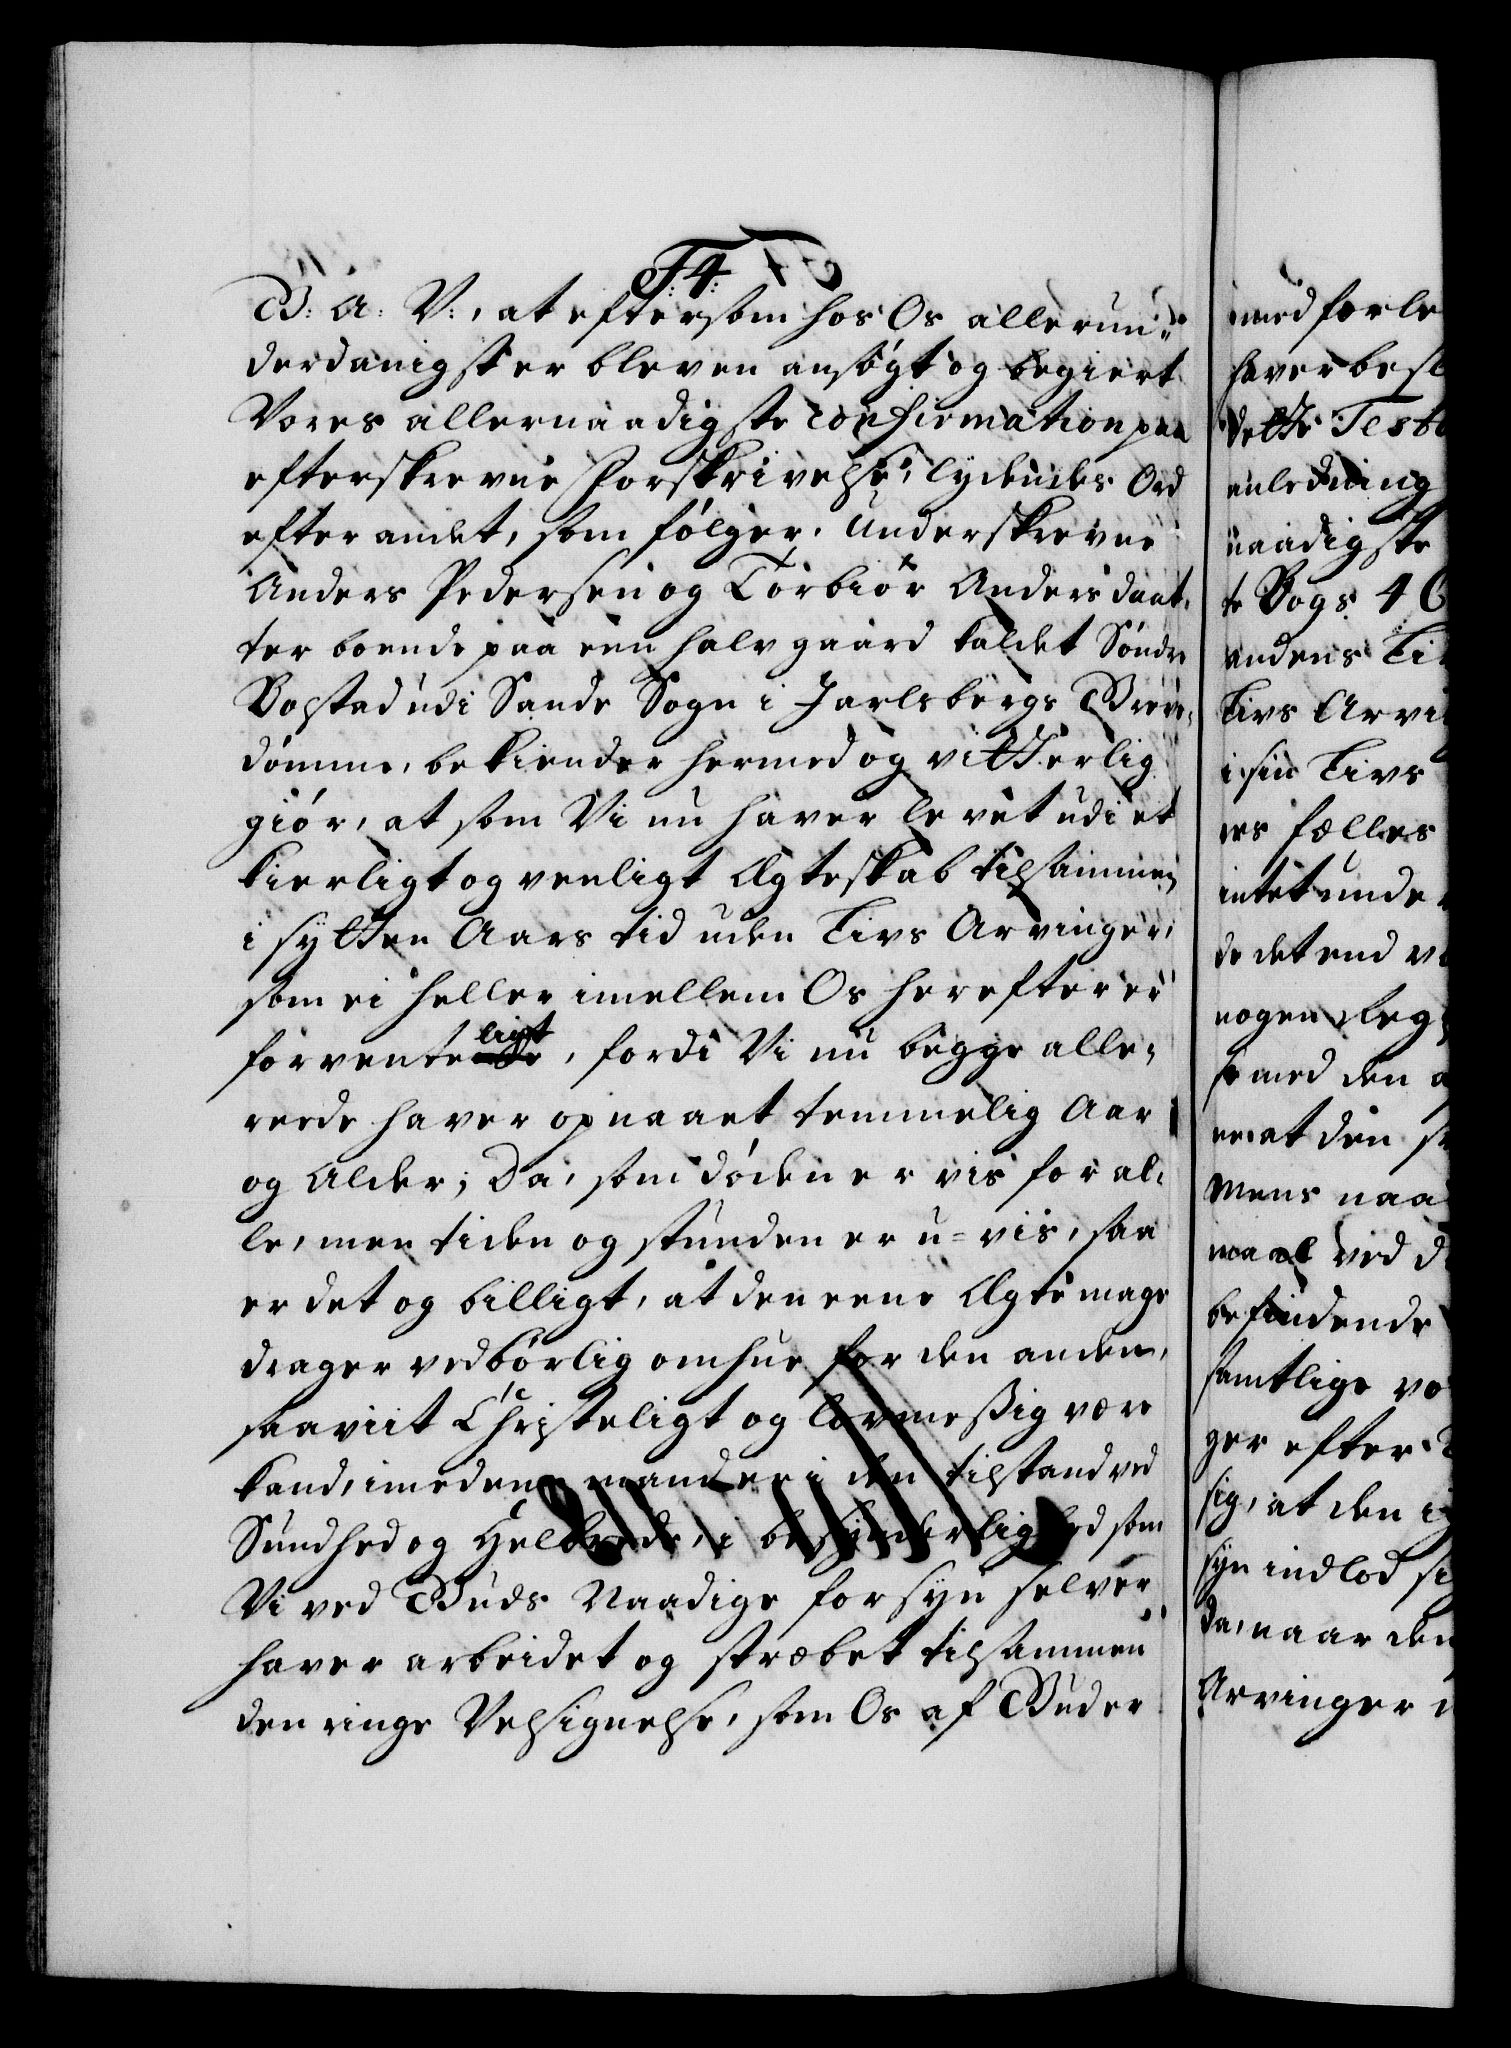 F. 4.
G: A: V:, at eftersom hos Os allerun-
derdanigst er bleven ansøgt og begiert
Vores allernaadigste Confirmation paa
efterskrevne Forskrivelse, lydendes Ord
efter andet, som følger. Underskrevne
Anders Pedersen og Torbiør Andersdaat-
ter boende paa een halv gaard kaldet Søndre
Bostad udi Sande Sogn i Jarlsbergs Grev-
dømme, bekiender hermed og vitterlig
giør, at som Vi nu haver levet udi et
kierligt og venligt Ægteskab tilsammen
i sytten Aars tid uden Livs Arvinger,
som ei heller imellem Os herefter er
forventeligt, fordi Vi nu begge alle-
reede haver opnaaet temmelig Aar
og Alder; Da, som døden er vis for al-
le, men tiden og stunden er u-vis, saa
er det og billigt, at den eene Ægtemage
drager vedbørlig omhue for den anden,
saaviit Christeligt og lovmeßig være
kand, imedens mand er i den tilstand ved
Sundhed og Helbrede, i besynderlighed som
Vi ved Guds Naadige forsyn selver
haver arbeidet og stræbet tilsammen
den ringe Velsignelse, som Os af Gud er
med forle
haver besl
dette Test
anledning
naadigste
te Bogs 4 C
andens Li
Livs Arvi
i sin Livs
res fælles
intet unde
de det end v
nogen Reg
se med den a
er at den s
Mens naa
maal ved d
befindende
samtlige vo
ger efter
sig, at den i
syn indlod si
da, naar den
Arvinger